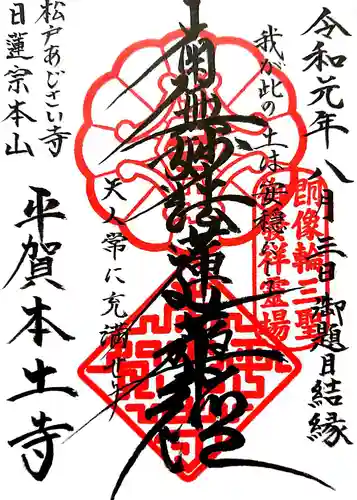 令和元年八月三日 御題目結縁
我が此の土は安穏
南無妙法蓮華経
天人常に充満せり
松戸あじさい寺
日蓮宗本山
平賀本土寺